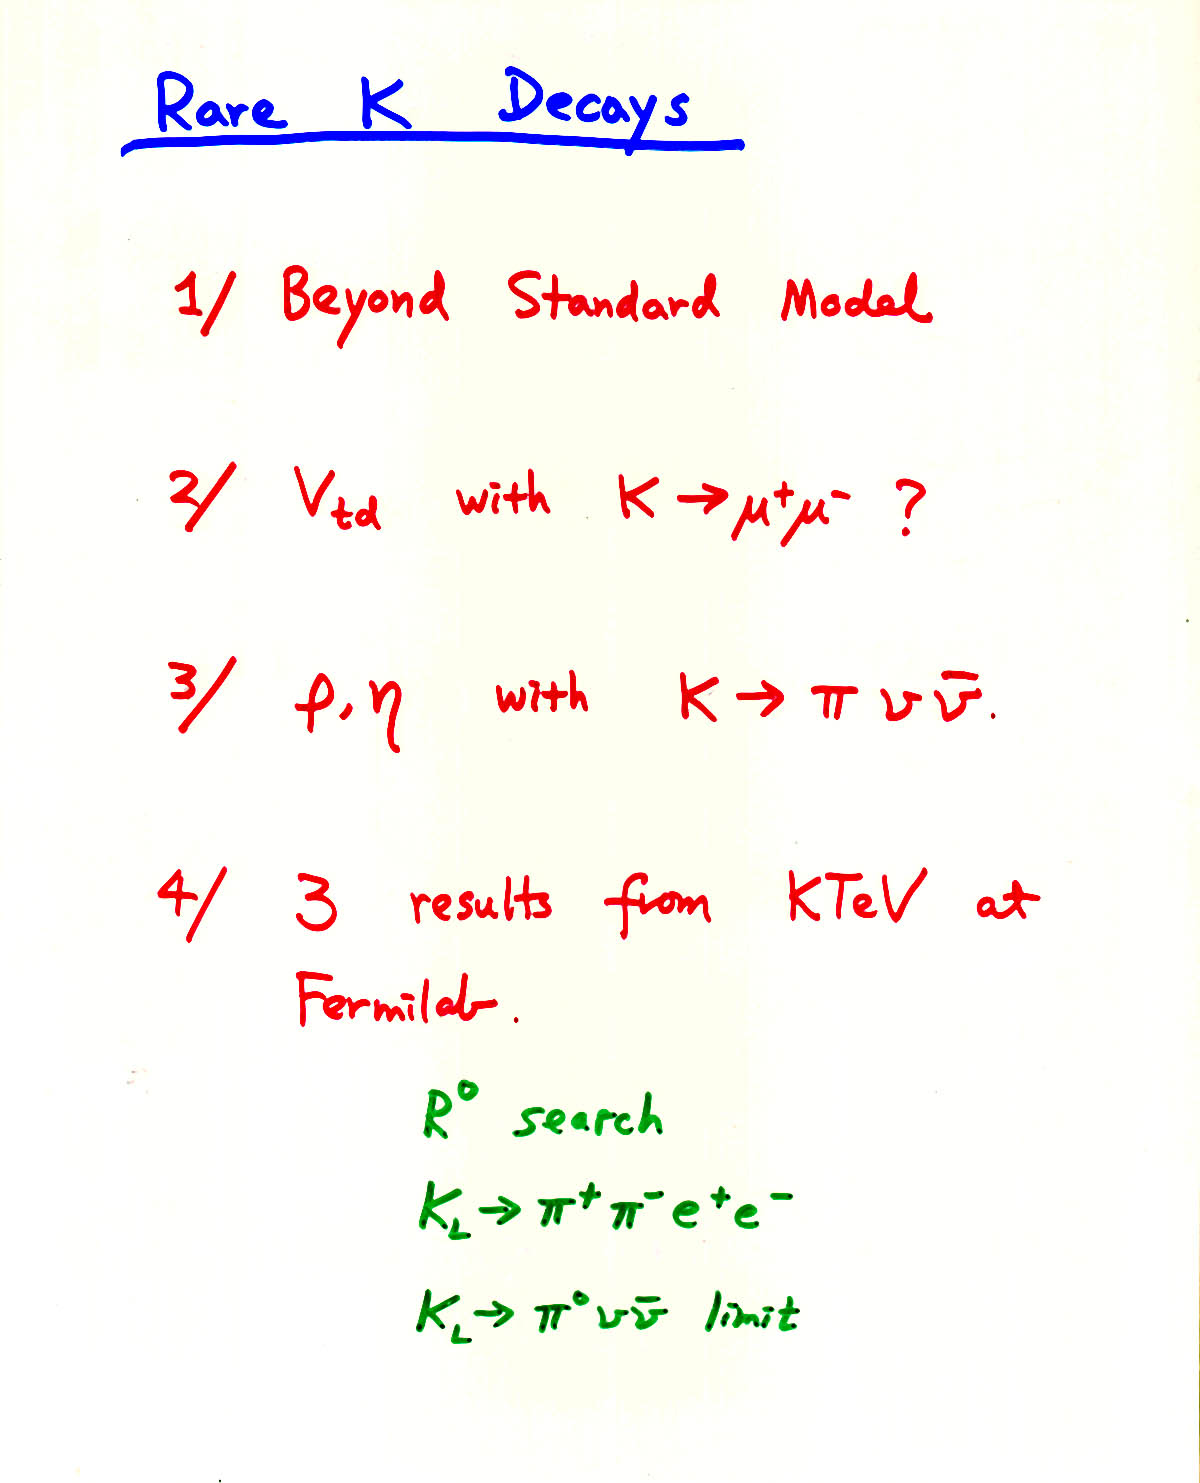 Rare K Decays
1/ Beyond Standard Model
2/ V_td with K → μ⁺μ⁻ ?
3/ ρ, η with K → π ν ν̄.
4/ 3 results from KTeV at
Fermilab.
R⁰ search
K_L → π⁺ π⁻ e⁺ e⁻
K_L → π⁰ ν ν̄ limit